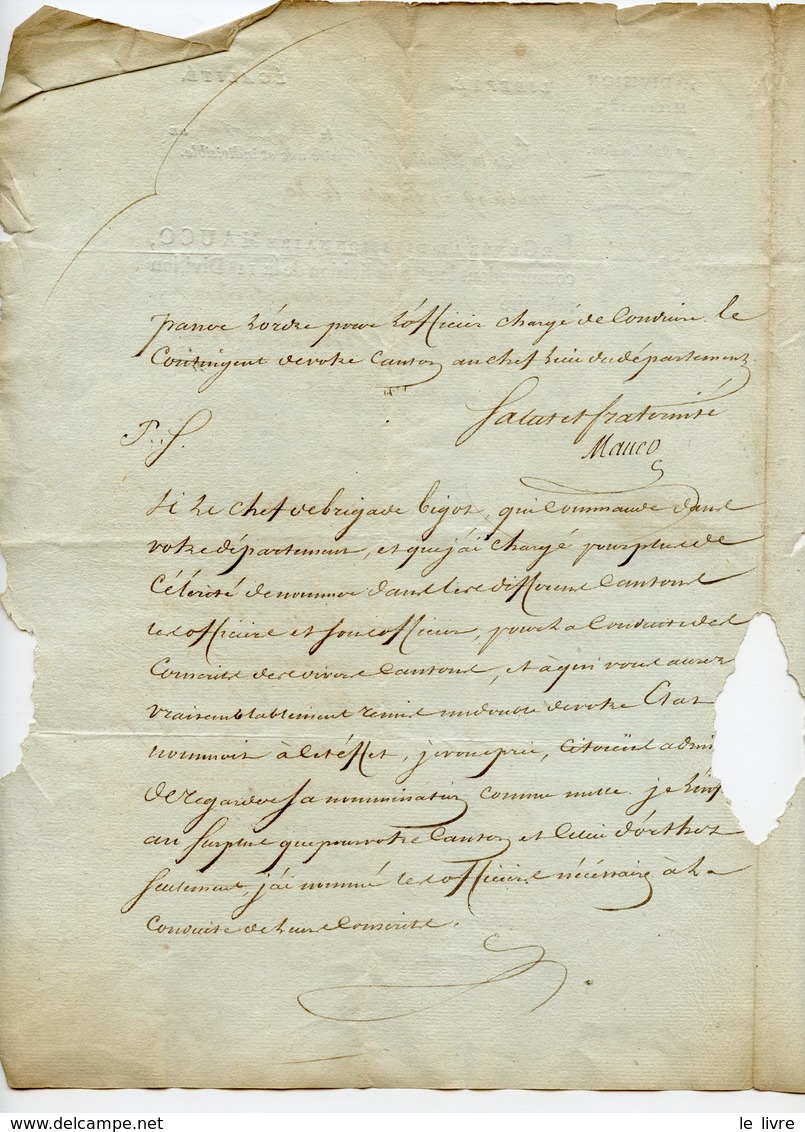 l'ordre pour l'officier chargé de Conduire le
Contingent de votre Canton au chef lieu du département.
Salut et fraternité
Mauco
P. S.
Si le chef de brigade Bigot, qui Commande dans
votre département, et que j'ai chargé pour plus de
Célérité de nommer dans les différens Cantons
les officiers et sous officiers, pour la Conduite des
Conscrits des divers Cantons, et à qui vous aurez
vraisemblablement remis un double de votre Etat
nommoit à cet éffet, je vous prie, Citoÿens admi
de Regarder sa nommination comme nulle. je
au surplus que pour votre Canton et Celui d'orthez
seulement, j'ai nommé les officiers nécéssaire à la
Conduite de leurs Conscrits.
www.delcampe.net
le livre